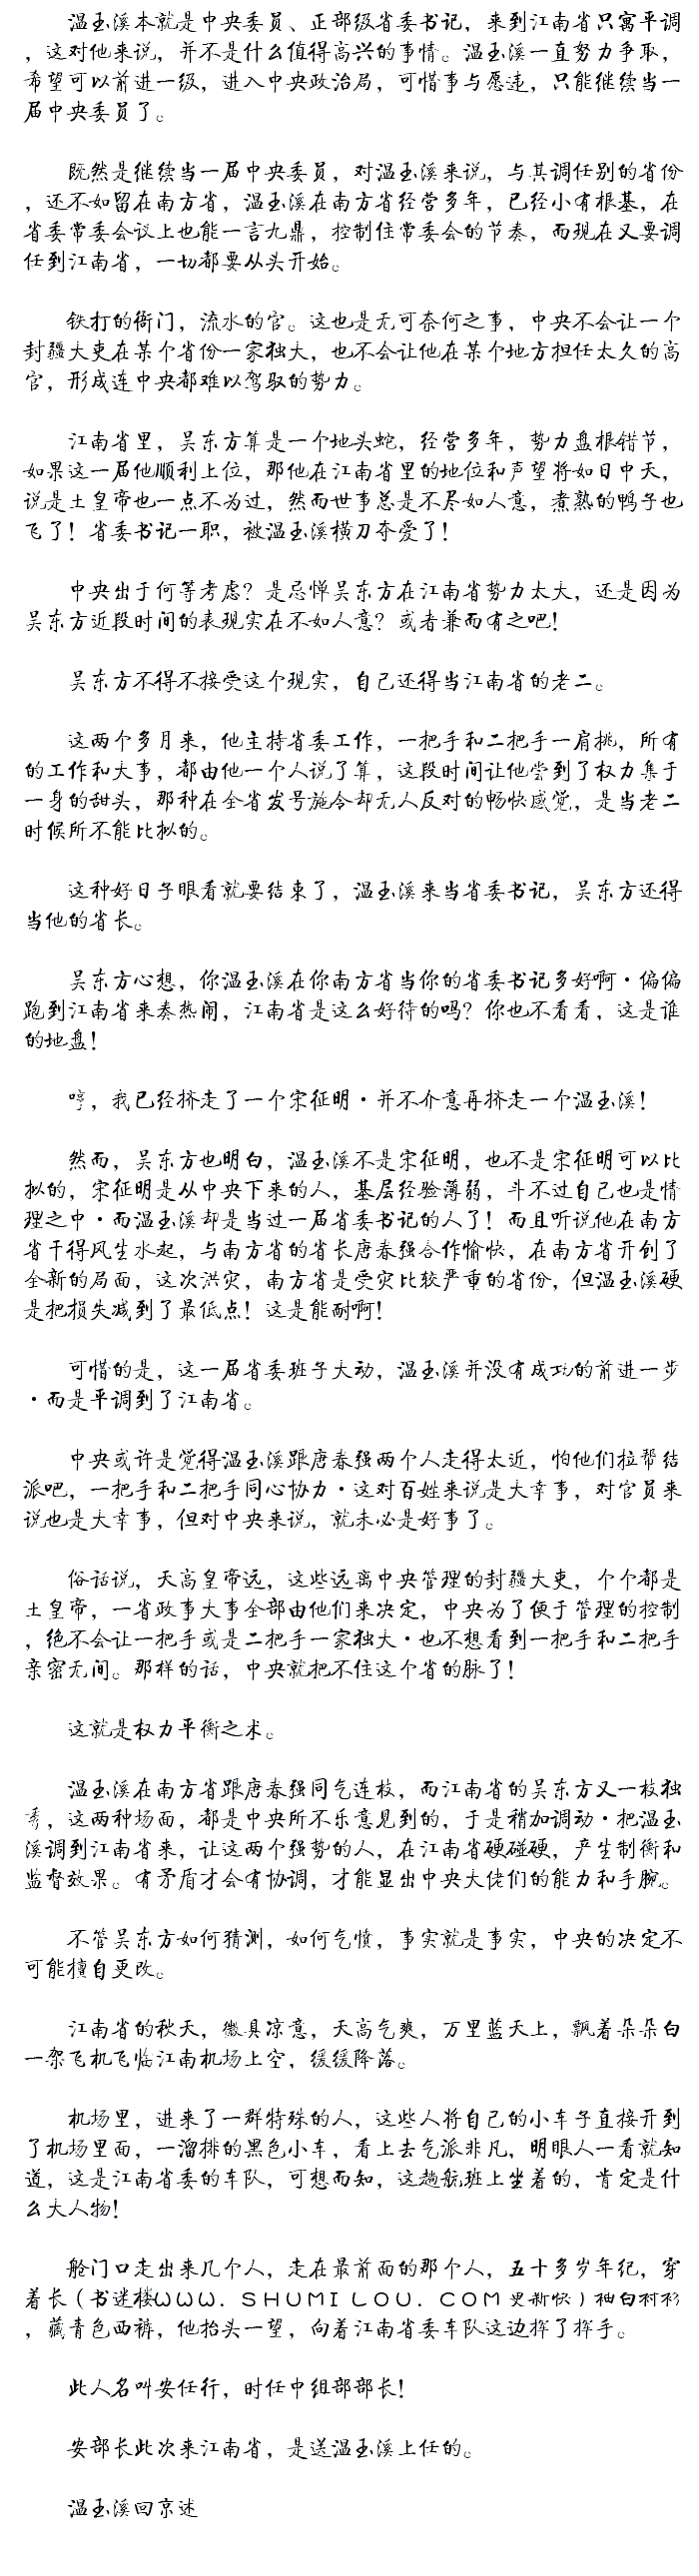 温玉溪本就是中央委员、正部级省委书记，来到江南省只寓平调
，这对他来说，并不是什么值得高兴的事情。温玉溪一直努力争取，
希望可以前进一级，进入中央政治局，可惜事与愿违，只能继续当一
届中央委员了。
既然是继续当一届中央委员，对温玉溪来说，与其调任别的省份
，还不如留在南方省，温玉溪在南方省经营多年，已经小有根基，在
省委常委会议上也能一言九鼎，控制住常委会的节奏，而现在又要调
任到江南省，一切都要从头开始。
铁打的衙门，流水的官。这也是无可奈何之事，中央不会让一个
封疆大吏在某个省份一家独大，也不会让他在某个地方担任太久的高
官，形成连中央都难以驾驭的势力。
江南省里，吴东方算是一个地头蛇，经营多年，势力盘根错节，
如果这一届他顺利上位，那他在江南省里的地位和声望将如日中天，
说是土皇帝也一点不为过，然而世事总是不尽如人意，煮熟的鸭子也
飞了！省委书记一职，被温玉溪横刀夺爱了！
中央出于何等考虑？是忌惮吴东方在江南省势力太大，还是因为
吴东方近段时间的表现实在不如人意？或者兼而有之吧！
吴东方不得不接受这个现实，自己还得当江南省的老二。
这两个多月来，他主持省委工作，一把手和二把手一肩挑，所有
的工作和大事，都由他一个人说了算，这段时间让他尝到了权力集于
一身的甜头，那种在全省发号施令却无人反对的畅快感觉，是当老二
时候所不能比拟的。
这种好日子眼看就要结束了，温玉溪来当省委书记，吴东方还得
当他的省长。
吴东方心想，你温玉溪在你南方省当你的省委书记多好啊·偏偏
跑到江南省来奏热闹，江南省是这么好待的吗？你也不看看，这是谁
的地盘！
哼，我已经挤走了一个宋征明·并不介意再挤走一个温玉溪！
然而，吴东方也明白，温玉溪不是宋征明，也不是宋征明可以比
拟的，宋征明是从中央下来的人，基层经验薄弱，斗不过自己也是情
理之中·而温玉溪却是当过一届省委书记的人了！而且听说他在南方
省干得风生水起，与南方省的省长唐春强合作愉快，在南方省开创了
全新的局面，这次洪灾，南方省是受灾比较严重的省份，但温玉溪硬
是把损失减到了最低点！这是能耐啊！
可惜的是，这一届省委班子大动，温玉溪并没有成功的前进一步
·而是平调到了江南省。
中央或许是觉得温玉溪跟唐春强两个人走得太近，怕他们拉帮结
派吧，一把手和二把手同心协力·这对百姓来说是大幸事，对官员来
说也是大幸事，但对中央来说，就未必是好事了。
俗话说，天高皇帝远，这些远离中央管理的封疆大吏，个个都是
土皇帝，一省政事大事全部由他们来决定，中央为了便于管理的控制
，绝不会让一把手或是二把手一家独大·也不想看到一把手和二把手
亲密无间。那样的话，中央就把不住这个省的脉了！
这就是权力平衡之术。
温玉溪在南方省跟唐春强同气连枝，而江南省的吴东方又一枝独
秀，这两种场面，都是中央所不乐意见到的，于是稍加调动·把温玉
溪调到江南省来，让这两个强势的人，在江南省硬碰硬，产生制衡和
监督效果。有矛盾才会有协调，才能显出中央大佬们的能力和手腕。
不管吴东方如何猜测，如何气愤，事实就是事实，中央的决定不
可能擅自更改。
江南省的秋天，徽具凉意，天高气爽，万里蓝天上，飘着朵朵白
一架飞机飞临江南机场上空，缓缓降落。
机场里，进来了一群特殊的人，这些人将自己的小车子直接开到
了机场里面，一溜排的黑色小车，看上去气派非凡，明眼人一看就知
道，这是江南省委的车队，可想而知，这趟航班上坐着的，肯定是什
么大人物！
舱门口走出来几个人，走在最前面的那个人，五十多岁年纪，穿
着长（书迷楼WWW．SHUMILOU．COM更新快）袖白衬衫
，藏青色西裤，他抬头一望，向着江南省委车队这边挥了挥手。
此人名叫安任行，时任中组部部长！
安部长此次来江南省，是送温玉溪上任的。
温玉溪回京述